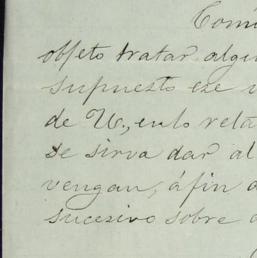 Com
objeto tratar algu
supuesto ese
de U., en lo rela
se sirva dar al
vengan, á fin d
sucesivo sobre